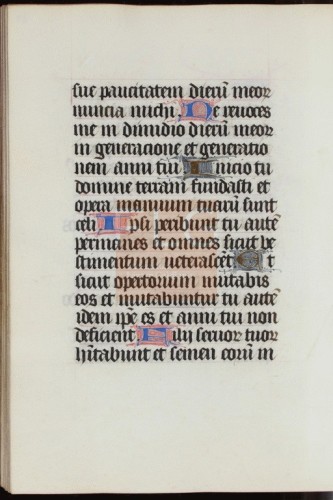 sue paucitatem dierū meor
nuncia michi. Ne reuoces
me in dimidio dierū meor
in generacione et generatio
nem anni tui Inicio tu
domine terram fundasti et
opera manuum tuarū sunt
celi Ipsi peribunt tu autē
permanes et omnes sicut ve
stimentum veterascēt Et
sicut opertorium mutabis
eos et mutabuntur tu autē
idem ipse es et anni tui non
deficient. Filij seruor tuor
hītabunt et semen eorū in